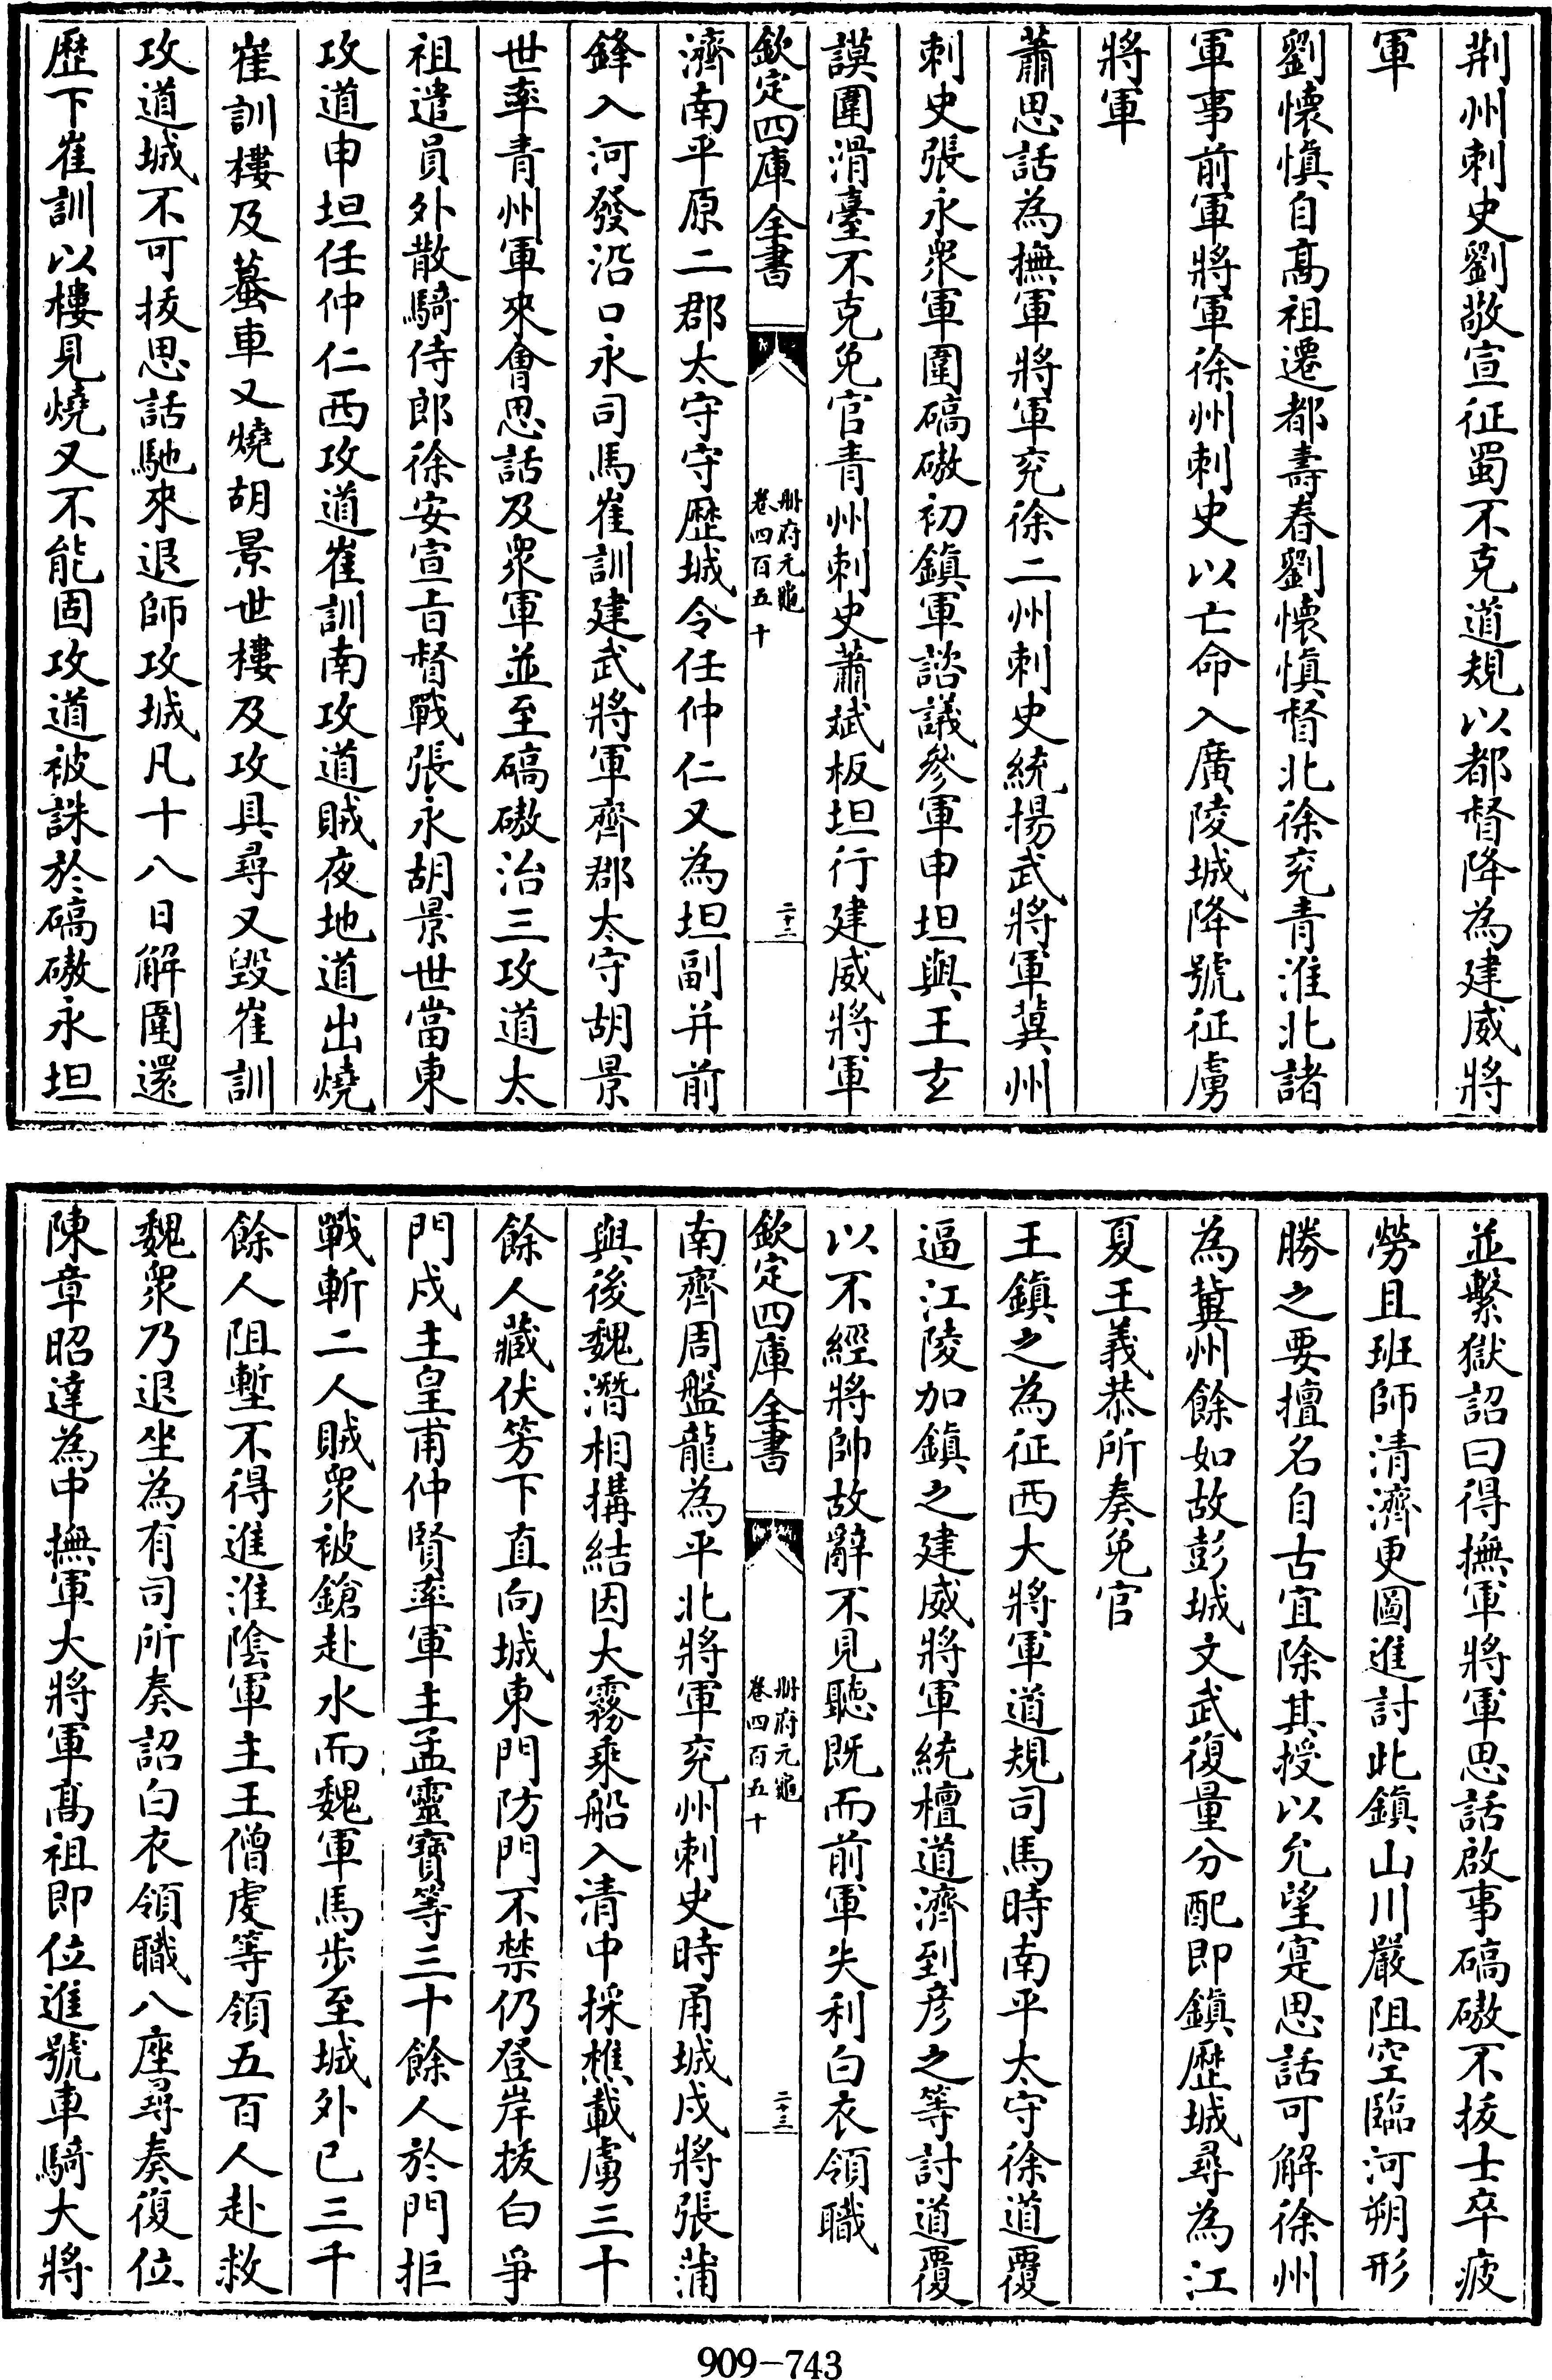 荆州刺史劉敬宣征蜀不克道規以都督降為建威將
軍
劉懷慎自髙祖遷都壽春劉懷慎督北徐兖青淮北諸
軍事前軍將軍徐州刺史以亡命入廣陵城降號征虜
將軍
蕭思話為撫軍將軍兖徐二州刺史統揚武將軍冀州
刺史張永衆軍圍碻磝初鎮軍諮議參軍申坦與王玄
謨圍滑臺不克免官青州刺史蕭斌板坦行建威將軍
欽定四庫全書
册府元龜
卷四百五十
二十二
濟南平原二郡太守守歷城令任仲仁又為坦副并前
鋒入河發沿口永司馬崔訓建武將軍齊郡太守胡景
世率青州軍來㑹思話及衆軍並至碻磝治三攻道太
祖遣員外散騎侍郎徐安宣㫖督戰張永胡景世當東
攻道申坦任仲仁西攻道崔訓南攻道賊夜地道出燒
崔訓樓及蟇車又燒胡景世樓及攻具尋又毁崔訓
攻道城不可拔思話馳來退師攻城凡十八日解圍還
歷下崔訓以樓見燒又不能固攻道被誅於碻磝永坦
並繫獄詔曰得撫軍將軍思話啟事碻磝不拔士卒疲
勞且班師清濟更圖進討此鎮山川嚴阻空臨河朔形
勝之要擅名自古宜除其授以允望寔思話可解徐州
為冀州餘如故彭城文武復量分配即鎮歷城尋為江
夏王義恭所奏免官
王鎮之為征西大將軍道規司馬時南平太守徐道覆
逼江陵加鎮之建威將軍統檀道濟到彦之等討道覆
以不經將帥故辭不見聽既而前軍失利白衣領職
欽定四庫全書
册府元龜
卷四百五十
二十三
南齊周盤龍為平北將軍兖州刺史時甬城戍將張蒲
與後魏潛相構結因大霧乘船入清中採樵載虜三十
餘人藏伏笭下直向城東門防門不禁仍登岸拔白爭
門戍主皇甫仲賢率軍主孟靈寶等三十餘人於門拒
戰斬二人賊衆被鎗赴水而魏軍馬步至城外已三千
餘人阻塹不得進淮陰軍主王僧虔等領五百人赴救
魏衆乃退坐為有司所奏詔白衣領職八座尋奏復位
陳章昭達為中撫軍大將軍髙祖即位進號車騎大將
909-743